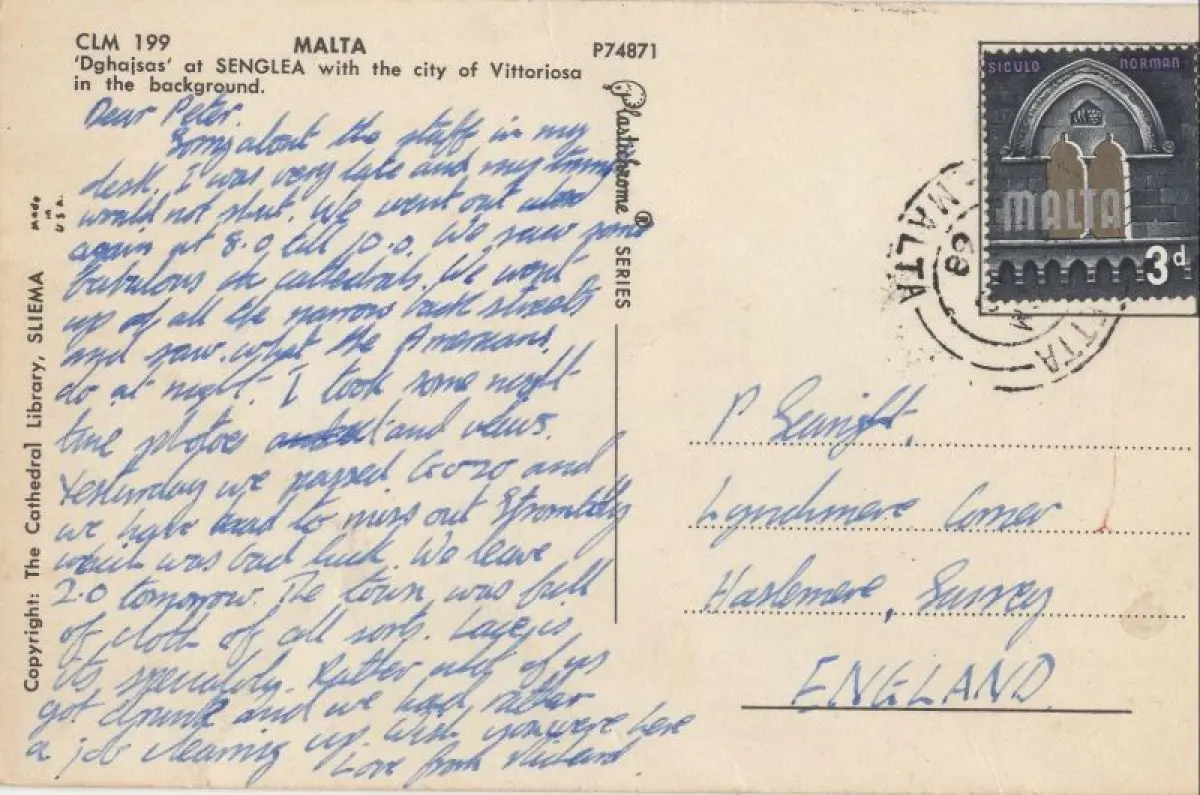 CLM 199 MALTA P74871
'Dghajsas' at SENGLEA with the city of Vittoriosa
in the background.
Dear Peter.
Sorry about the stuff in my
desk. I was very late and my
would not shut. We went out
again at 8.0 till 10.0. We saw some
fabulous cathedrals. We went
up all the narrow back streets
and saw what the Americans
do at night. I took some night
time photos and views.
Yesterday we passed Gozo and
we have had to miss out Strombolly
which was bad luck. We leave
2.0 tomorrow. The town was full
of cloth of all sorts. Lace is
its speciality. Rather of us
got drunk and we had rather
a job clearing up. Wish you were here
Love from Richard.
Plastichrome ® SERIES
Made in U.S.A.
Copyright: The Cathedral Library, SLIEMA
SICULO NORMAN
MALTA
3d
MALTA
68
P Seuright.
Lynchmere Corner
Haslemere, Surrey
ENGLAND